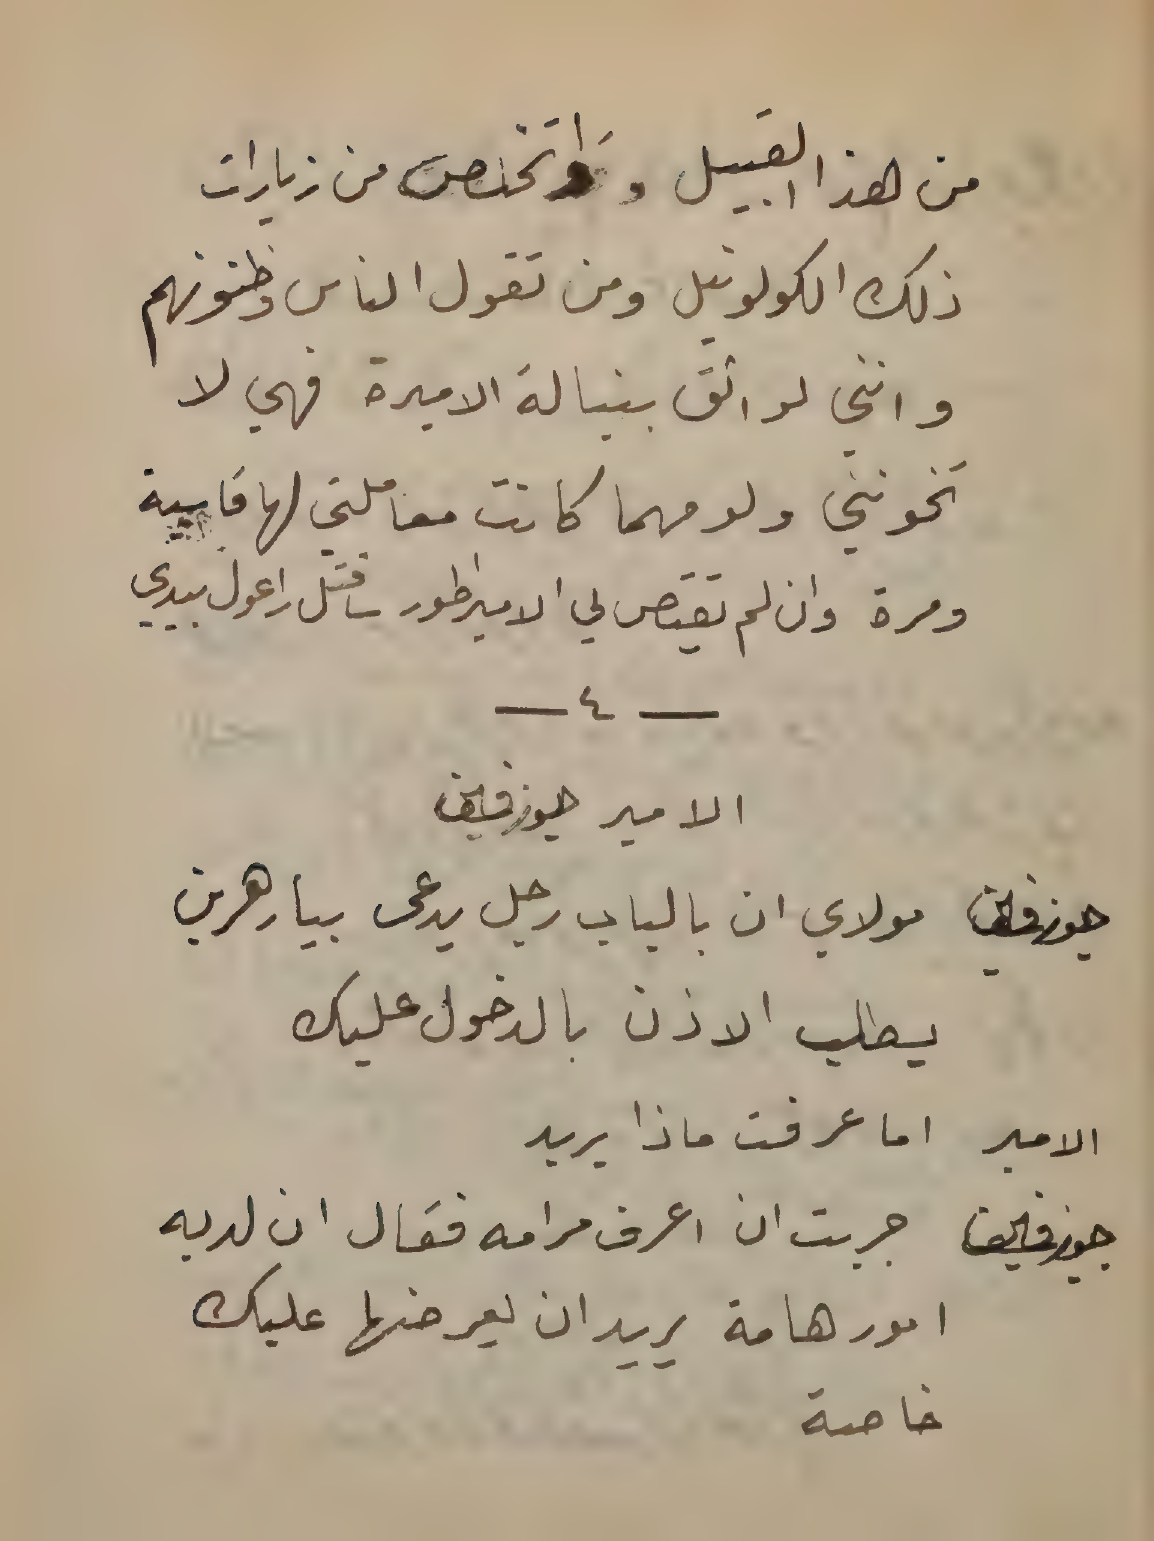 من هذا القبيل و واتخلص من زيارات
ذلك الكولونيل ومن تقول الناس وظنونهم
وانني لواثق بنبالة الاميرة فهي لا
تخونني ولو مهما كانت معاملتي لها قاسية
ومرة وان لم تقتص لي الامبراطور ساقتل راعول بيدي
— ٤ —
الامير جوزفين
جوزفين مولاي ان بالباب رجل يدعى بيار هرين
يطلب الاذن بالدخول عليك
الامير اما عرفت ماذا يريد
جوزفين جربت ان اعرف مرامه فقال ان لديه
امور هامة يريد ان يعرضها عليك
خاصة